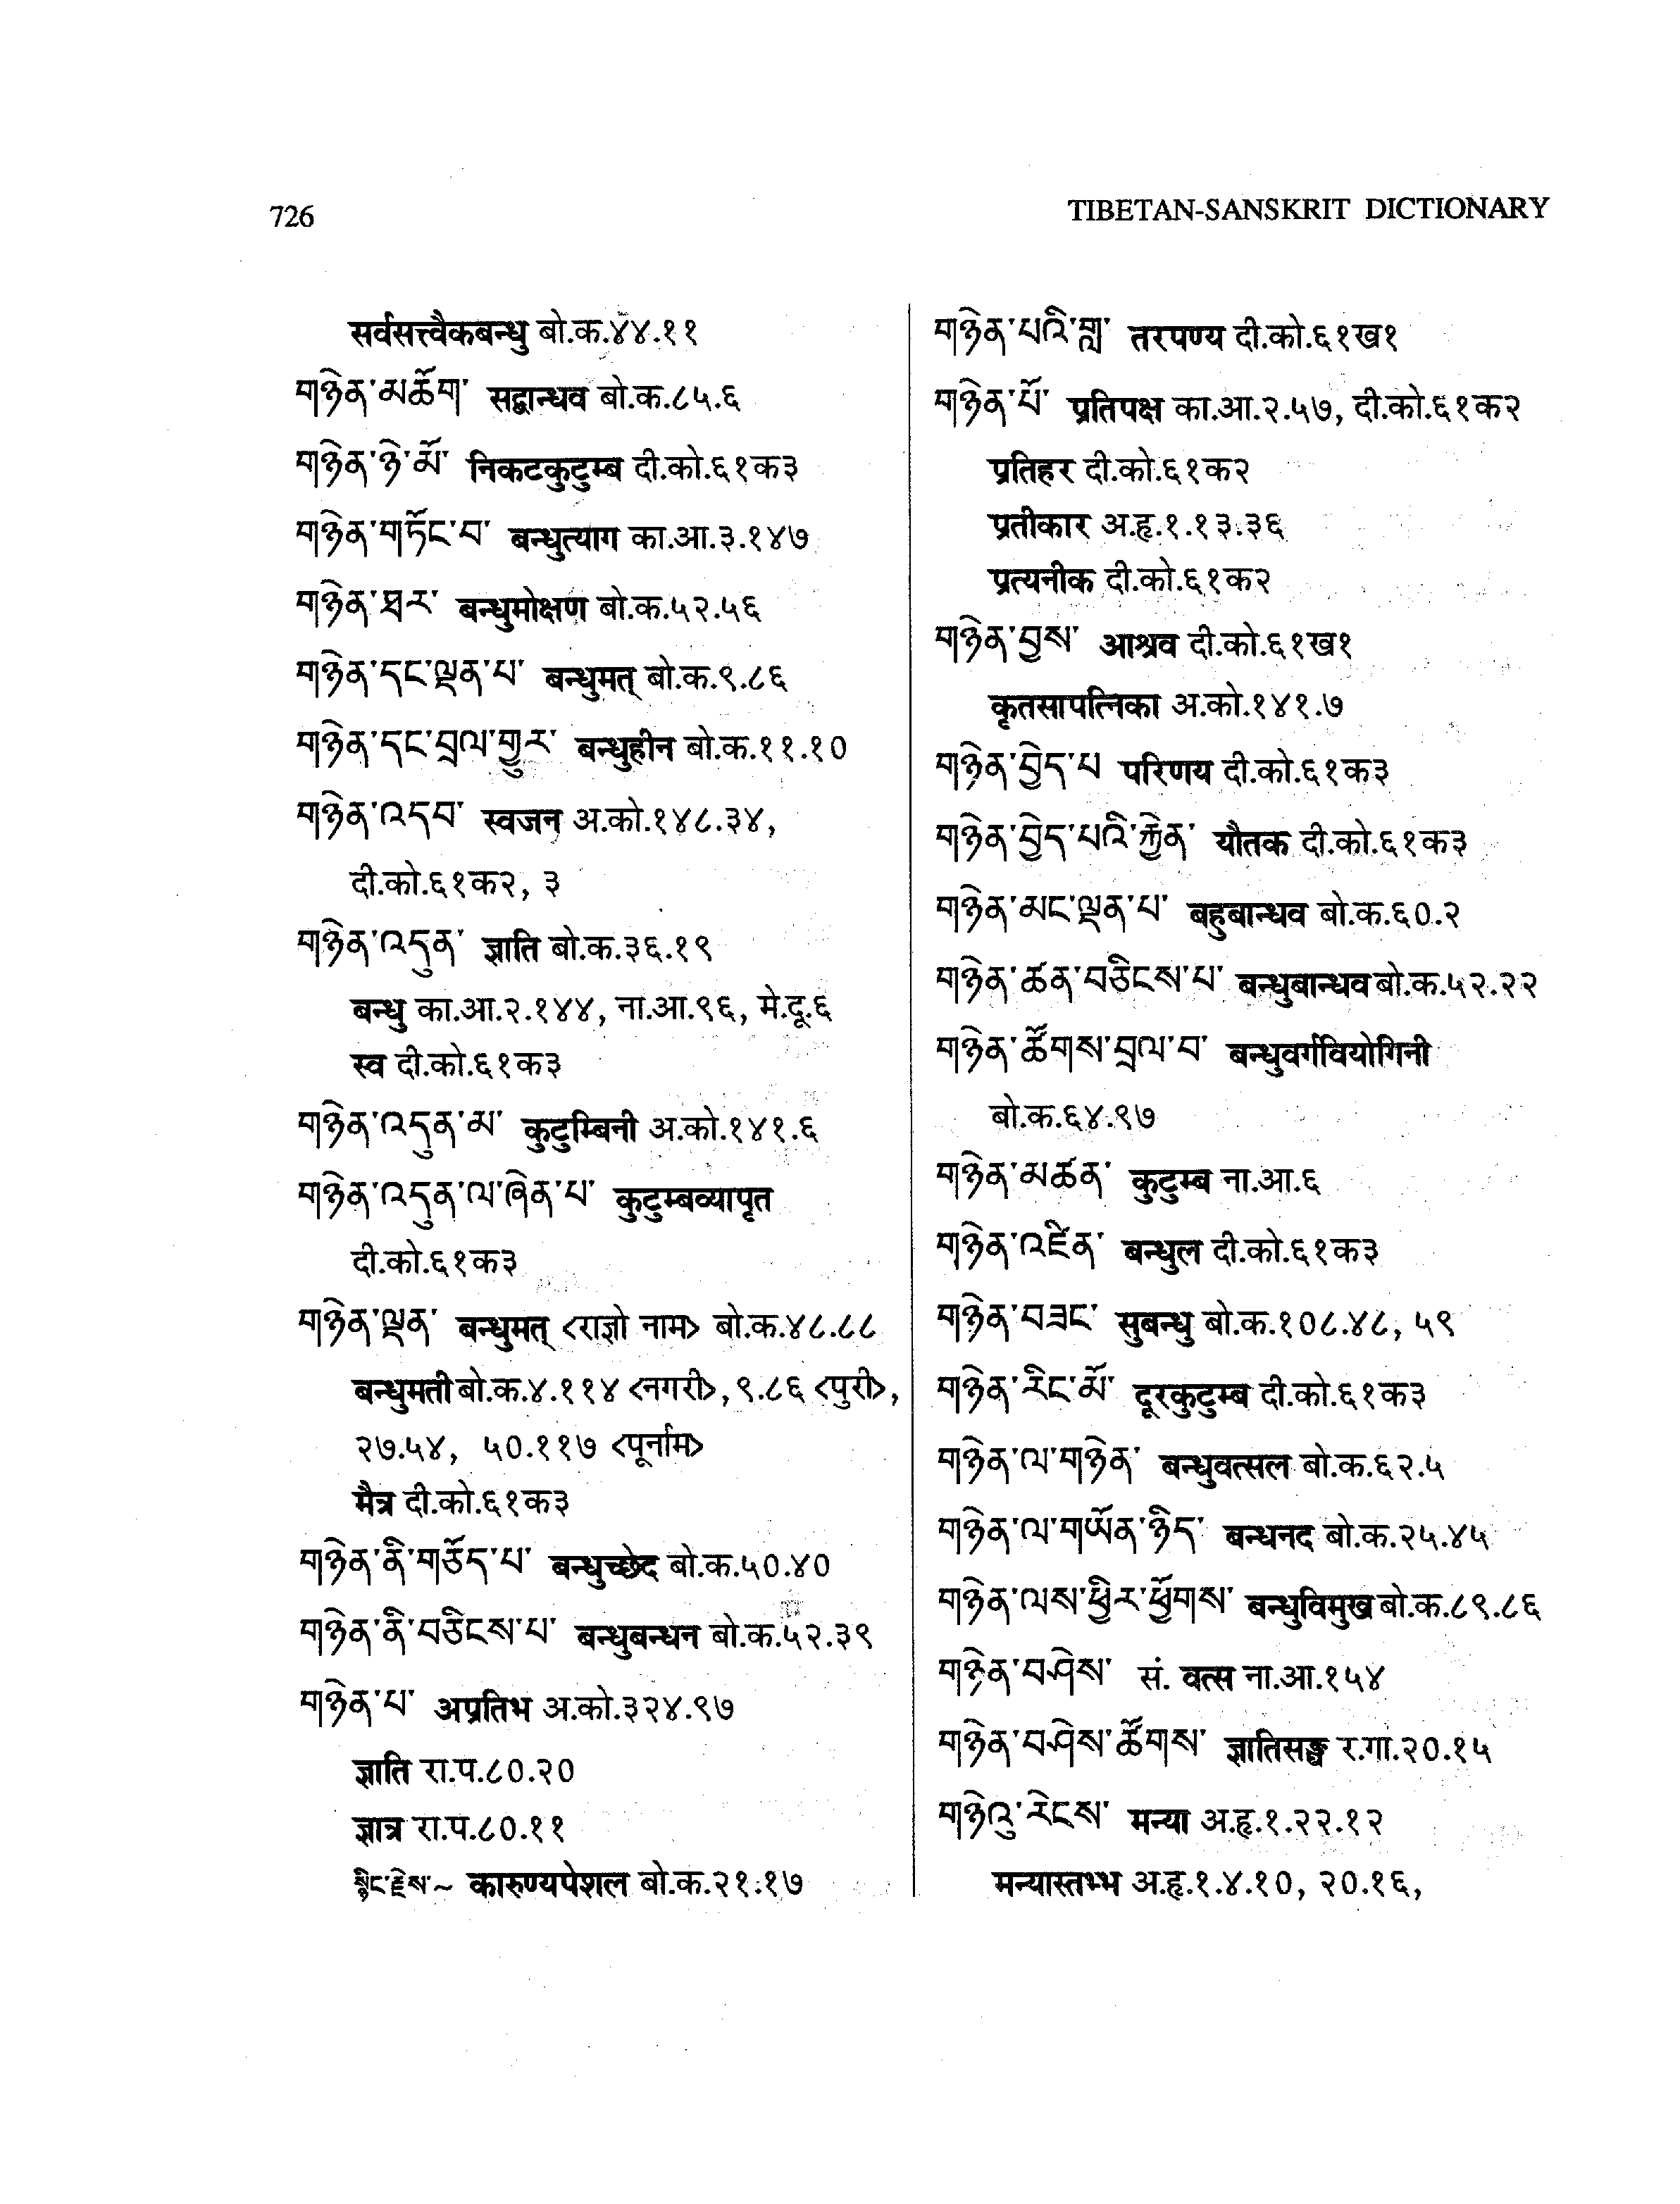 726
TIBETAN-SANSKRIT DICTIONARY
सर्वसत्त्वैकबन्धु बो.क.४४.११
གཉེན་མཆོག་ सद्बान्धव बो.क.८५.६
གཉེན་ཉེ་མོ་ निकटकुटुम्ब दी.को.६१क३
གཉེན་གཏོང་བ་ बन्धुत्याग का.आ.३.१४७
གཉེན་ཐར་ बन्धुमोक्षण बो.क.५२.५६
གཉེན་དང་ལྡན་པ་ बन्धुमत् बो.क.९.८६
གཉེན་དང་བྲལ་གྱུར་ बन्धुहीन बो.क.११.१०
གཉེན་འདབ་ स्वजन अ.को.१४८.३४,
दी.को.६१क२, ३
གཉེན་འདུན་ ज्ञाति बो.क.३६.१९
बन्धु का.आ.२.१४४, ना.आ.९६, मे.दू.६
स्व दी.को.६१क३
གཉེན་འདུན་མ་ कुटुम्बिनी अ.को.१४१.६
གཉེན་འདུན་ལ་ཞེན་པ་ कुटुम्बव्यापृत
दी.को.६१क३
གཉེན་ལྡན་ बन्धुमत् <राज्ञो नाम> बो.क.४८.८८
बन्धुमती बो.क.४.११४ <नगरी>, ९.८६ <पुरी>,
२७.५४, ५०.११७ <पूर्नाम>
मैत्र दी.को.६१क३
གཉེན་ནི་གཅོད་པ་ बन्धुच्छेद बो.क.५०.४०
གཉེན་ནི་བཅིངས་པ་ बन्धुबन्धन बो.क.५२.३९
གཉེན་པ་ अप्रतिभ अ.को.३२४.९७
ज्ञाति रा.प.८०.२०
ज्ञात्र रा.प.८०.११
སྙིང་རྗེས་~ कारुण्यपेशल बो.क.२१.१७
གཉེན་པའི་གླ་ तरपण्य दी.को.६१ख१
གཉེན་པོ་ प्रतिपक्ष का.आ.२.५७, दी.को.६१क२
प्रतिहर दी.को.६१क२
प्रतीकार अ.हृ.१.१३.३६
प्रत्यनीक दी.को.६१क२
གཉེན་བྱས་ आश्रव दी.को.६१ख१
कृतसापत्निका अ.को.१४१.७
གཉེན་བྱེད་པ परिणय दी.को.६१क३
གཉེན་བྱེད་པའི་རྐྱེན་ यौतक दी.को.६१क३
གཉེན་མང་ལྡན་པ་ बहुबान्धव बो.क.६०.२
གཉེན་ཚན་བཅིངས་པ་ बन्धुबान्धव बो.क.५२.२२
གཉེན་ཚོགས་བྲལ་བ་ बन्धुवर्गवियोगिनी
बो.क.६४.९७
གཉེན་མཚན་ कुटुम्ब ना.आ.६
གཉེན་འཛིན་ बन्धुल दी.को.६१क३
གཉེན་བཟང་ सुबन्धु बो.क.१०८.४८, ५९
གཉེན་རིང་མོ་ दूरकुटुम्ब दी.को.६१क३
གཉེན་ལ་གཉེན་ बन्धुवत्सल बो.क.६२.५
གཉེན་ལ་གཡོན་ཉིད་ बन्धनद बो.क.२५.४५
གཉེན་ལས་ཕྱིར་ཕྱོགས་ बन्धुविमुख बो.क.८९.८६
གཉེན་བཤེས་ सं. वत्स ना.आ.१५४
གཉེན་བཤེས་ཚོགས་ ज्ञातिसङ्घ र.गा.२०.१५
གཉེའུ་རེངས་ मन्या अ.हृ.१.२२.१२
मन्यास्तभ्भ अ.हृ.१.४.१०, २०.१६,